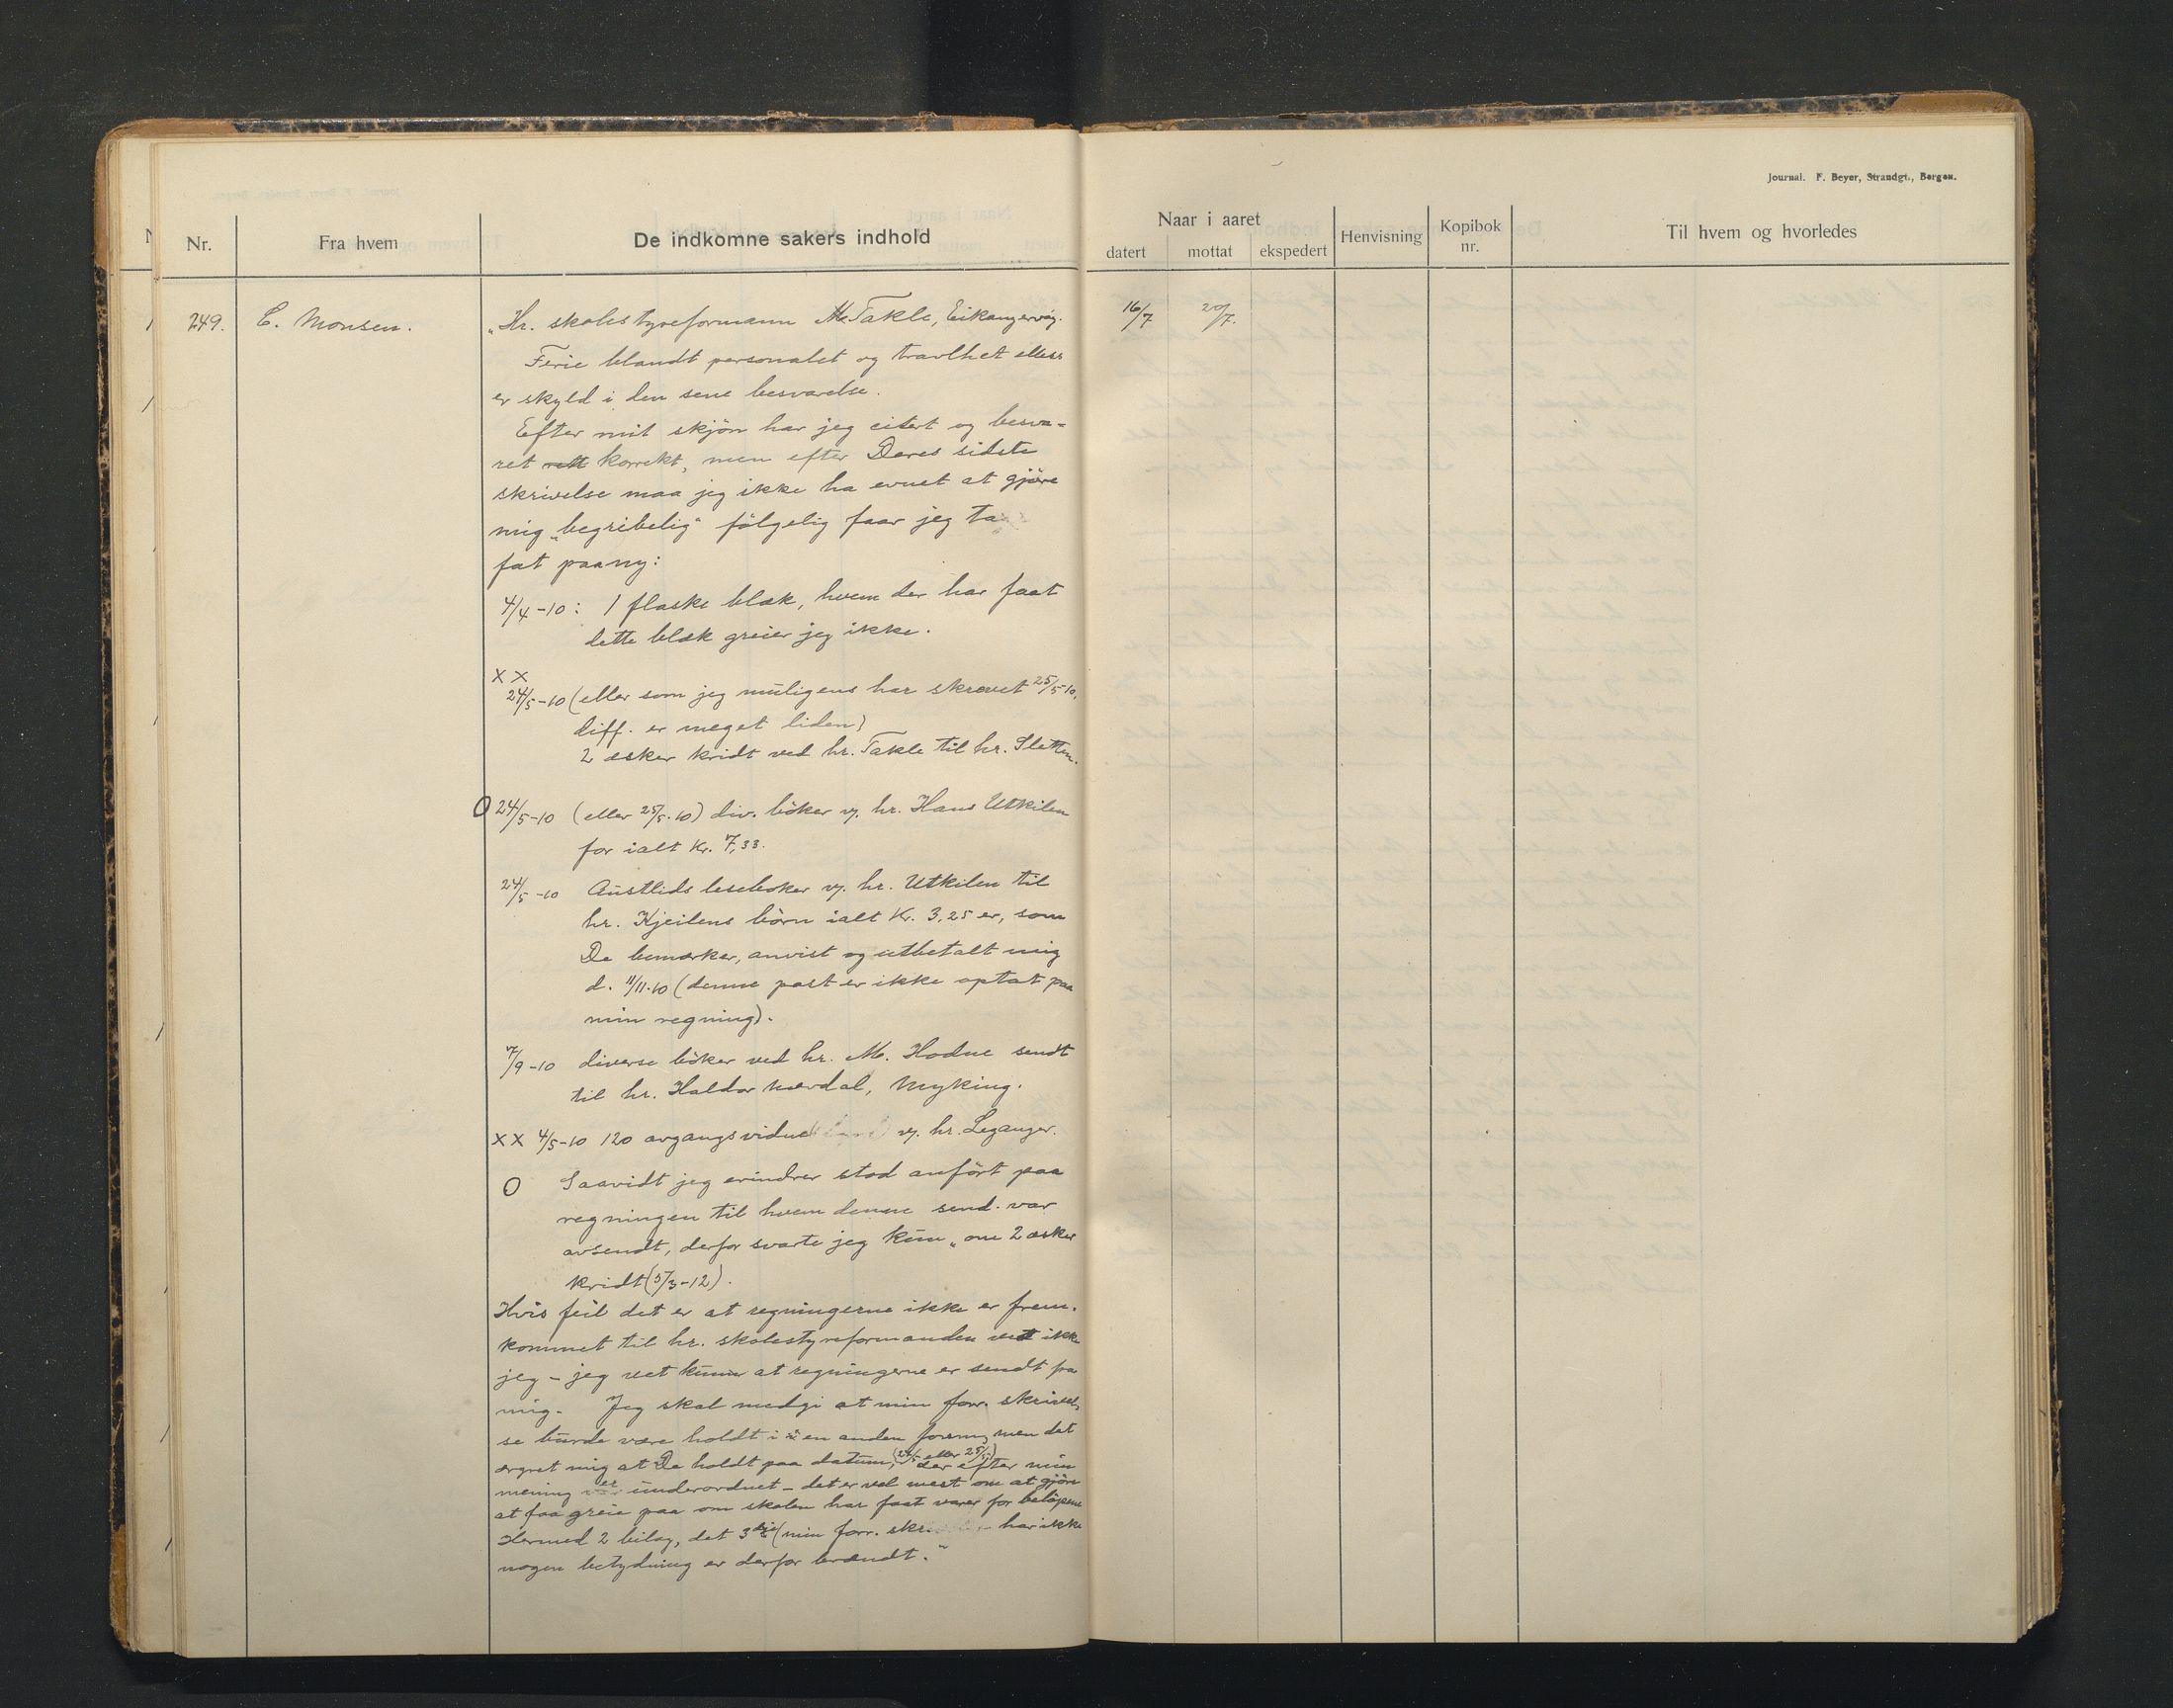 Journal. F. Beyer, Strandgt., Bergen.
Nr.
Fra hvem
De indkomne sakers indhold
Naar i aaret
datert
mottat
ekspedert
Henvisning
Kopibok
nr.
Til hvem og hvorledes
249.
C. Monsen.
16/7
20/7.
„Hr. skolestyreformann M. Takle, Eikangervåg.
Ferie blandt personalet og travlhet ellers
er skyld i den sene besvarelse.
Efter mit skjön har jeg citert og besva-
ret rett korrekt, men efter Deres sidste
skrivelse maa jeg ikke ha evnet at gjöre
mig „begribelig“ fölgelig faar jeg ta
fat paany:
4/4-10: 1 flaske blæk, hvem der har faat
dette blæk greier jeg ikke.
x x
24/5-10 (eller som jeg muligens har skrevet 25/5-10,
diff. er meget liden)
2 æsker kridt ved hr. Takle til hr. Sletten.
O 24/5-10 (eller 25/5-10) div. böker v. hr. Hans Utkilen
for ialt Kr. 7,33.
24/5-10 Austlids lesebøker v. hr. Utkilen til
hr. Kjeilens börn ialt Kr. 3,25 er, som
De bemærker, anvist og utbetalt mig
d. 11/11-10 (denne post er ikke optat paa
min regning).
7/9-10 diverse böker ved hr. M. Hodne sendt
til hr. Haldor Mærdal, Myking.
x x 4/5-10 120 avgangsvidne v. hr. Leganger.
O Saavidt jeg erindrer stod anfört paa
regningen til hvem denne send. var
avsendt, derfor svarte jeg kun „om 2 æsker
kridt (5/3-12).
Hvis feil det er at regningerne ikke er frem-
kommet til hr. skolestyreformanden vet ikke
jeg - jeg vet kun at regningerne er sendt fra
mig. Jeg skal medgi at min forr. skrivel-
se burde være holdt i en anden form, men det
ærgret mig at De holdt paa datum, (24/5 eller 25/5) der efter min
mening er underordnet - det er vel mest om at gjöre
at faa greie paa om skolen har faat varer for belöpene
Hermed 2 bilag, det 3dje (min forr. skr. har ikke
nogen betydning er derfor brændt.“